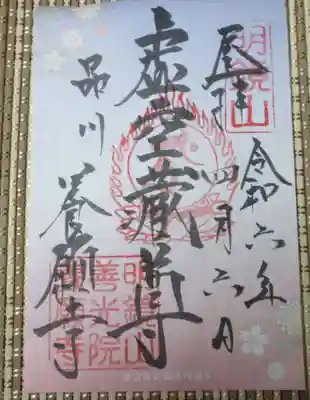 明鏡山
奉拝
令和六年
四月六日
虚空蔵尊
品川
養願寺
明鏡山
善光院
養願寺